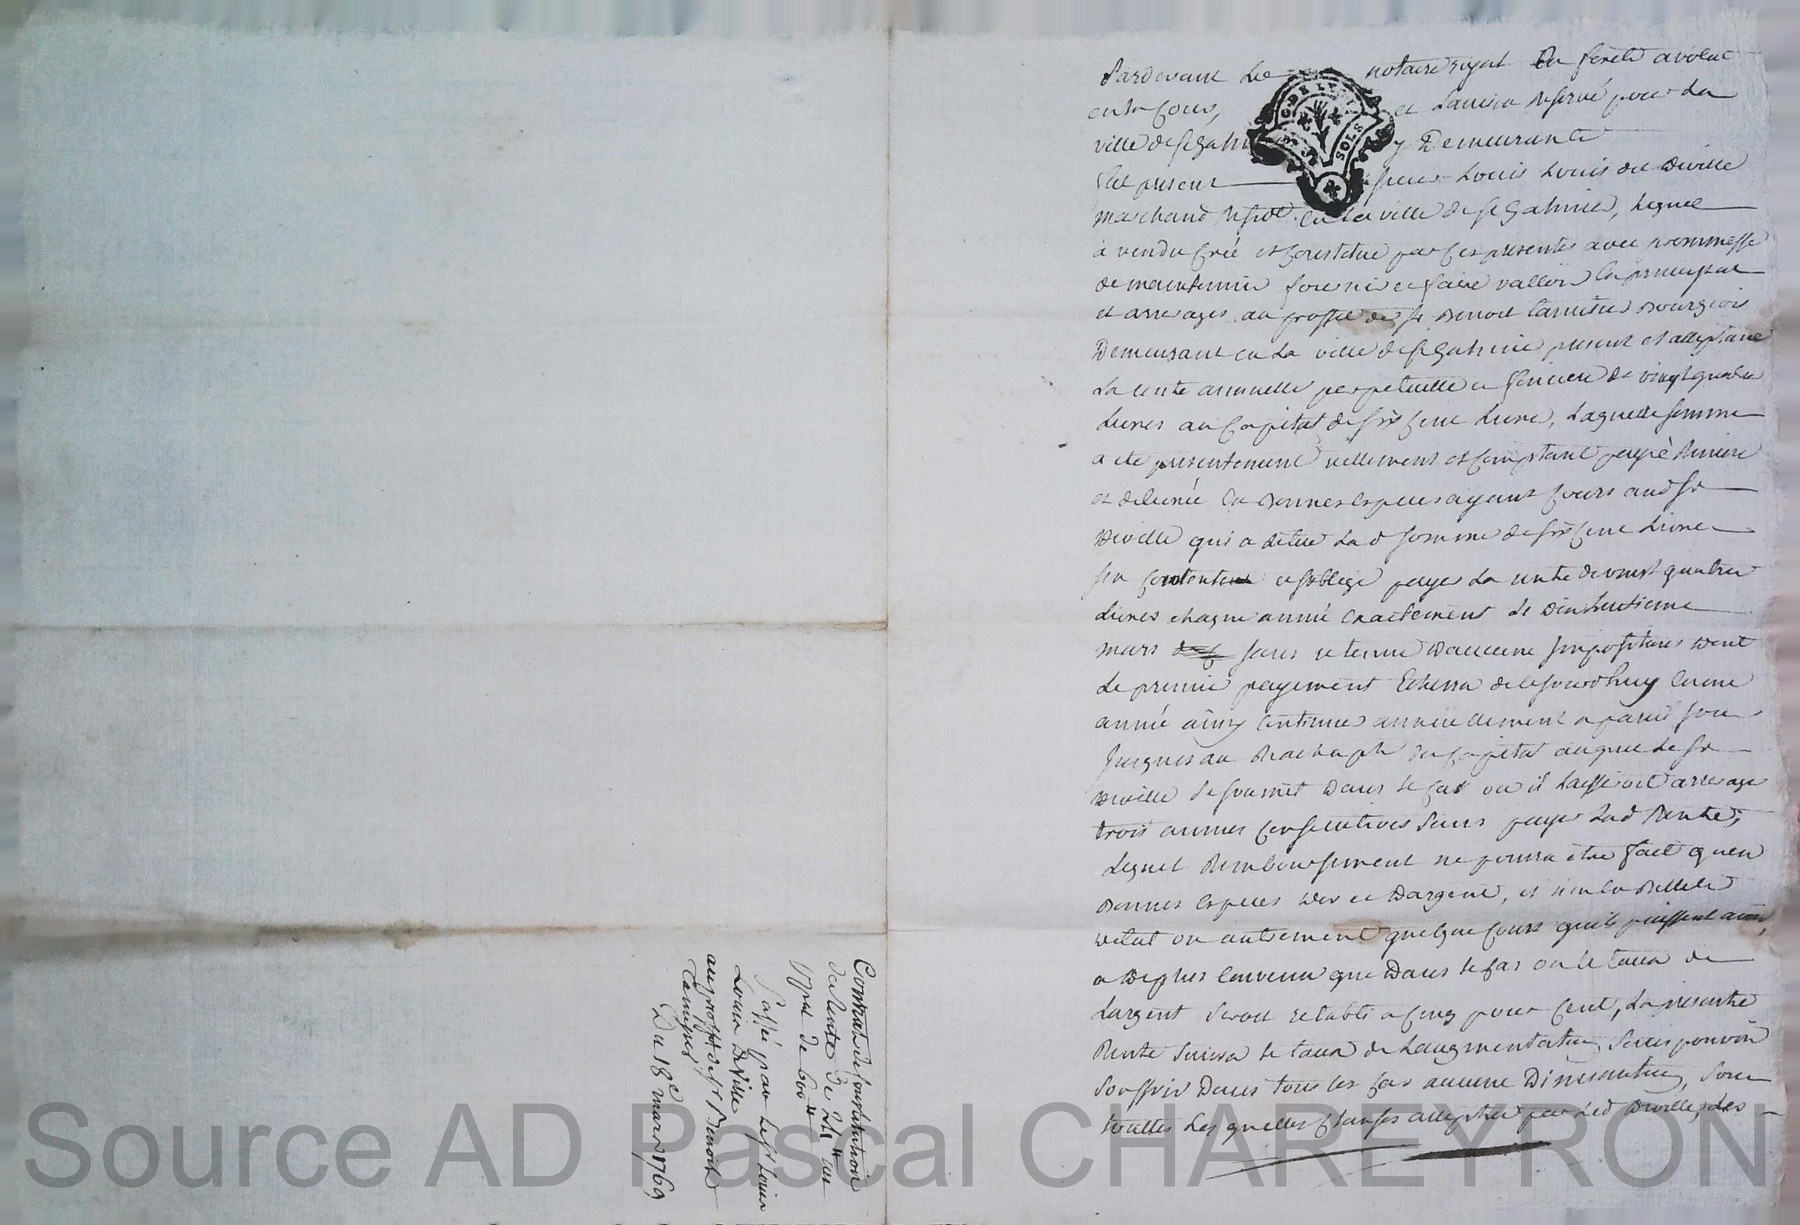 Pardevant Le notaire royal
en la Cour, et réservé pour La
ville de St Galm y Demeurante
fut present sieur Louis Louis de Deville
marchand en La ville de St Galmier, Lequel
à vendu créé et constitué par ces presentes avec promesse
de maintenir fournir et faire valloir en principal
et arrerages au proffit de Sr Benoit Bourgeois
Demeurant en La ville de St Galmier present et acceptant
La rente annuelle perpetuelle et de vingt quatre
Livres au Capital de six cent Livre, Laquelle somme
a été presentement réellement et comptant payé
et delivrée en Bonnes especes ayant Cours aud Sr
Deville qui a Lad somme de six cent Livre
sen contente et soblige payer La rente de vingt quatre
Livres chaque année exactement Le Dixhuitieme
mars sans retenue Daucune impositions Dont
Le premier payement Echerra de cejourdhuy en une
année ainsy continuer annuellement a pareil jour
jusques au Rachapt du Capital auquel Le Sr
Deville se soumet Dans le cas ou il Laisseroit arrerager
trois années consecutives sans payer Lad Rente,
Lequel Remboursement ne pourra être fait quen
Bonnes especes Dor et Dargent, et non en Billets
Detat ou autrement quelque cours quils puissent avoir,
a Convenu que Dans le cas ou le taux de
Largent seroit retabli a cinq pour Cent, La presente
Rente suivra le taux de Laugmentation sans pouvoir
souffrir Dans tous les cas aucune Diminution, sous
toutes Lesquelles Clauses acceptées par Led Deville, Les
Contrat de Constitution
de Rente de 24 ₶ au
Cpal de 600 ₶
Passé par le Sr Louis
Louis DeVille
au proffit de Sr Benoit
Du 18e mars 1769
G. DE LYON
SOLS
Source AD Pascal CHAREYRON